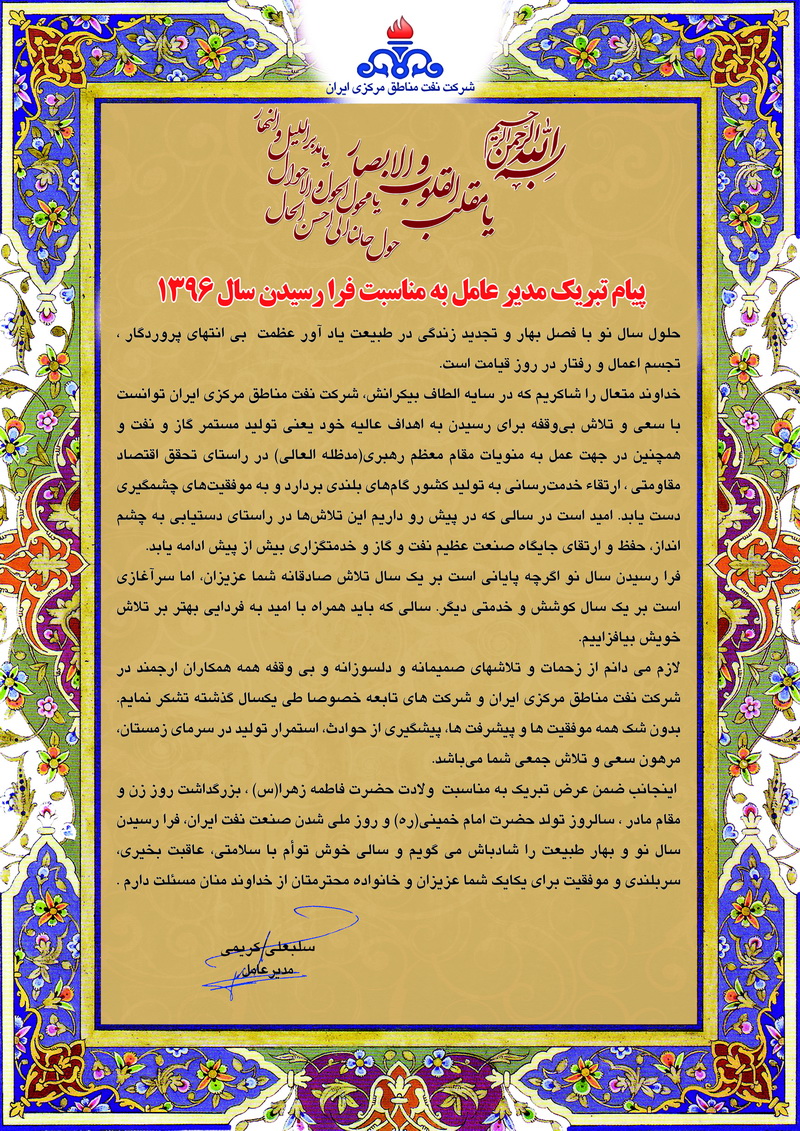 شرکت نفت مناطق مرکزی ایران
بسم الله الرحمن الرحیم
یا مقلب القلوب و الابصار
یا مدبر اللیل و النهار
یا محول الحول و الاحوال
حول حالنا الی احسن الحال
پیام تبریک مدیر عامل به مناسبت فرا رسیدن سال ۱۳۹۶
حلول سال نو با فصل بهار و تجدید زندگی در طبیعت یاد آور عظمت بی انتهای پروردگار ،
تجسم اعمال و رفتار در روز قیامت است.
خداوند متعال را شاکریم که در سایه الطاف بیکرانش، شرکت نفت مناطق مرکزی ایران توانست
با سعی و تلاش بی‌وقفه برای رسیدن به اهداف عالیه خود یعنی تولید مستمر گاز و نفت و
همچنین در جهت عمل به منویات مقام معظم رهبری(مدظله العالی) در راستای تحقق اقتصاد
مقاومتی ، ارتقاء خدمت‌رسانی به تولید کشور گام‌های بلندی بردارد و به موفقیت‌های چشمگیری
دست یابد. امید است در سالی که در پیش رو داریم این تلاش‌ها در راستای دستیابی به چشم
انداز، حفظ و ارتقای جایگاه صنعت عظیم نفت و گاز و خدمتگزاری بیش از پیش ادامه یابد.
فرا رسیدن سال نو اگرچه پایانی است بر یک سال تلاش صادقانه شما عزیزان، اما سرآغازی
است بر یک سال کوشش و خدمتی دیگر. سالی که باید همراه با امید به فردایی بهتر بر تلاش
خویش بیافزاییم.
لازم می دانم از زحمات و تلاشهای صمیمانه و دلسوزانه و بی وقفه همه همکاران ارجمند در
شرکت نفت مناطق مرکزی ایران و شرکت های تابعه خصوصا طی یکسال گذشته تشکر نمایم.
بدون شک همه موفقیت ها و پیشرفت ها، پیشگیری از حوادث، استمرار تولید در سرمای زمستان،
مرهون سعی و تلاش جمعی شما می‌باشد.
اینجانب ضمن عرض تبریک به مناسبت ولادت حضرت فاطمه زهرا(س) ، بزرگداشت روز زن و
مقام مادر ، سالروز تولد حضرت امام خمینی(ره) و روز ملی شدن صنعت نفت ایران، فرا رسیدن
سال نو و بهار طبیعت را شادباش می گویم و سالی خوش توأم با سلامتی، عاقبت بخیری،
سربلندی و موفقیت برای یکایک شما عزیزان و خانواده محترمتان از خداوند منان مسئلت دارم .
سلبعلی کریمی
مدیر عامل